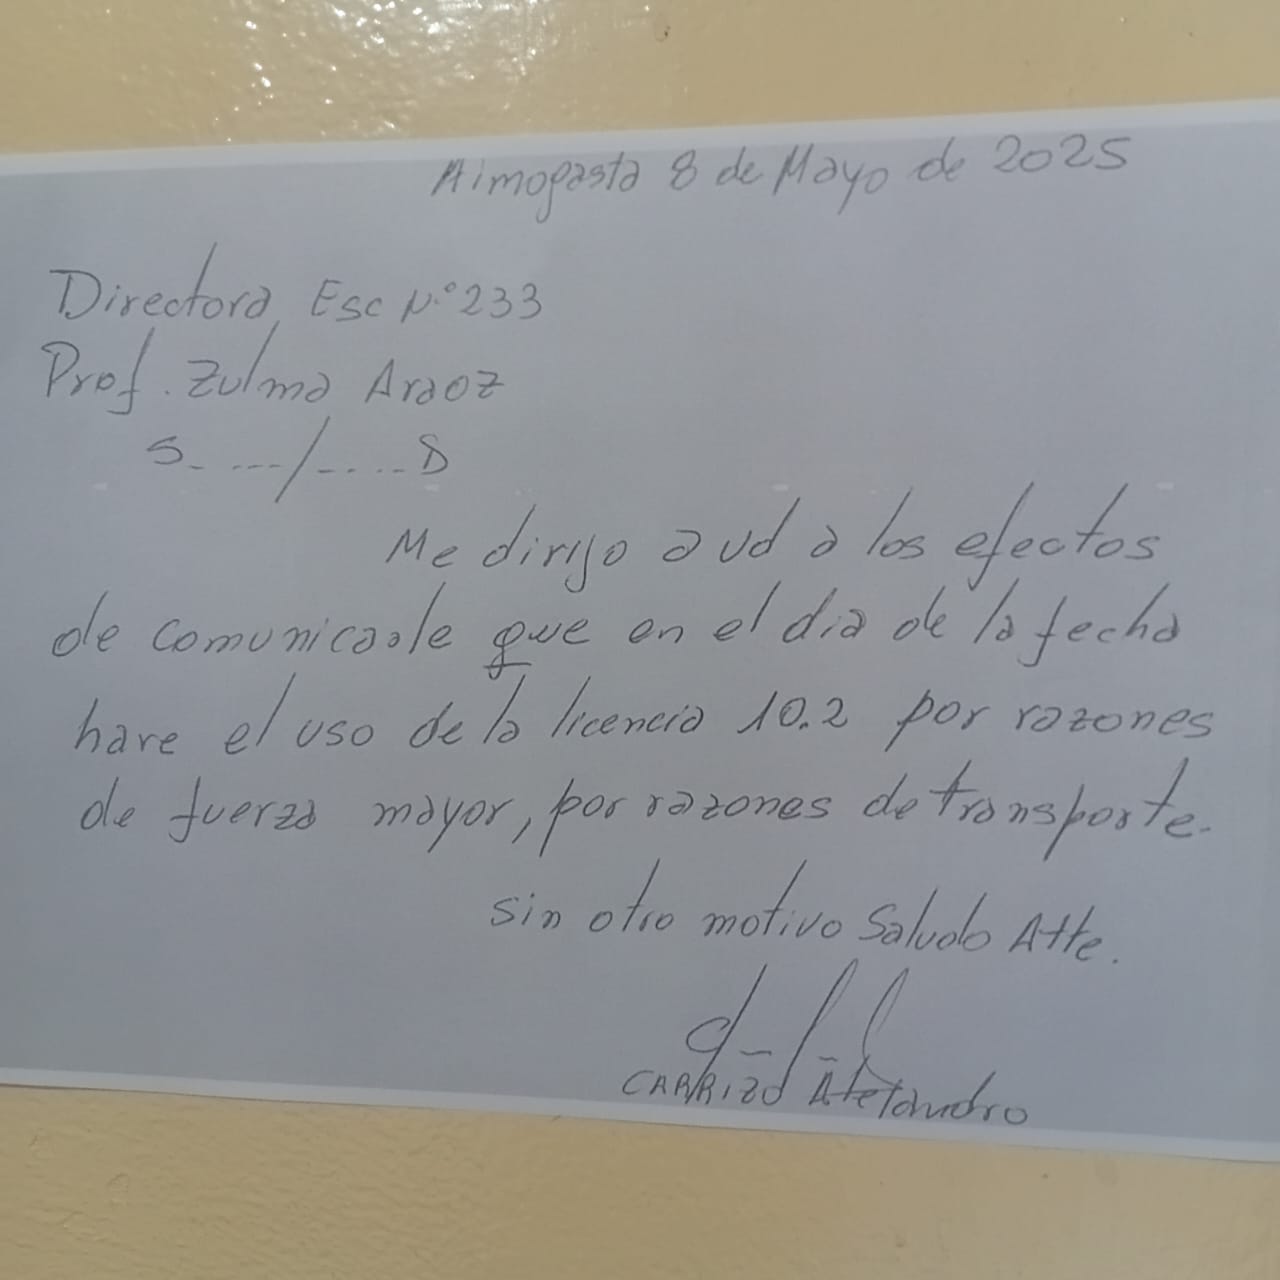 Aimogasta 8 de Mayo de 2025
Directora Esc N.º 233
Prof. Zulma Araoz
S. .../.....D
Me dirijo a ud a los efectos
de comunicarle que en el dia de la fecha
hare el uso de la licencia 10.2 por razones
de fuerza mayor, por razones de transporte.
sin otro motivo Saludo Atte.
CARRIZO Alejandro